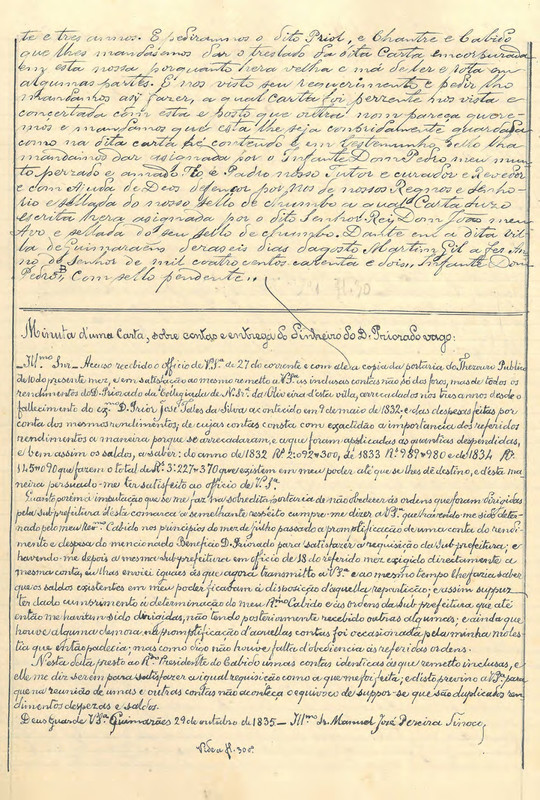 te e tres annos. E pediramnos o dito Priol, e Chantre e Cabido
que lhes mandasemos dar o treslado da dita Carta emcorpurada
em esta nossa porquanto hera velha e má de ler e rota em
algumas partes. E nos visto seu requerimento e pedir lho
mandamos asy fazer, a qual carta foi perrente nos vista e
concertada com esta e posto que outra nom pareça quere-
mos e mandamos que esta lhe seja compridamente guardada
como na dita carta he contendo e em testemunho dello lha
mandamos dar asignada por o Infante Dom Pedro meu mui-
to prezado e amado Tio e Padre nosso Tutor e curador e Regedor
e com Ajuda de Deos defensor por Nós de nossos Regnos e Senho-
rio e sellada do nosso sello de chumbo a qual Carta suzo
escrita hera asignada por o dito Senhor Rei Dom João meu
Avo e sellada do seu sello de chumbo. Dante em a dita vil-
la de Guimaraens deraseis dias dagosto Martim Gil a fez. An-
no do Senhor de mil coatro centos coatenta e dois, Infante Dom
Pedro, Com sello pendente.
Minuta d'uma Carta, sobre contas e entrega do dinheiro do D. Priorado vago:
Ill.mo Snr. Accuso recebido o officio de V.S.ª de 27 do corrente e com elle a copia da portaria do Thezouro Publico
de 10 do presente mez, e em satisfação ao mesmo remetto a V.S.ª as inclusas contas não só dos foros, mas de todos os
rendimentos do D. Priorado da Collegiada de N. Sr.ª da Oliveira d'esta villa, arrecadados nos tres annos desde o
fallecimento do ex.mo D. Prior José Telles da Silva acontecido em 9 de maio de 1832, e das despezas feitas por
conta dos mesmos rendimentos; de cujas contas consta com exactidão a importancia dos referidos
rendimentos a maneira porque se arrecadaram, e a que foram applicadas as quantias despendidas,
e bem assim os saldos, a saber: do anno de 1832 R.s 2:092$300, de 1833 R.s 989$980 e de 1834 R.s
145$090 que fazem o total de R.s 3:227$370 que existem em meu poder até que se lhes dê destino, e d'esta ma-
neira persuado-me ter satisfeito ao officio de V.S.ª
Quanto porém á imputação que se me faz na sobredita portaria de não obedecer ás ordens que foram dirigidas
pela sub-prefeitura d'esta comarca a semelhante respeito cumpre-me dizer a V.S.ª que havendo me sido deter-
nado pelo meu Rev.mo Cabido nos principios do mez de julho passado a promptificação de uma conta do rendi-
mento e despesa do mencionado Beneficio D. Priorado para satisfazer a requisição da Sub-prefeitura; e
havendo-me depois a mesma sub-prefeitura em officio de 18 do referido mez, exigido directamente a
mesma conta, eu lhas enviei iguaes ás que agora transmitto a V.S.ª e ao mesmo tempo lhe fazia saber
que os saldos existentes em meu poder ficavam á disposição d'aquella repartição; e assim suppuz
ter dado cumprimento á determinação do meu R.mo Cabido e ás ordens da sub prefeitura que até
então me haviam sido dirigidas, não tendo posteriormente recebido outras algumas; e ainda que
houve alguma demora na promptificação d'aquellas contas foi occasionada pela minha moles-
tia que então padecia; mas como digo não houve falta d'obediencia ás referidas ordens.
Nesta data presto ao R.mo Presidente do Cabido umas contas identicas ás que remetto inclusas, e
elle me diz serem para satisfazer a igual requisição como a que me foi feita; e disto previno a V.S.ª para
que na reunião de umas e outras contas não aconteça o equivoco de suppor-se que são duplicados ren-
dimentos despezas e saldos.
Deus Guarde V.S.ª Guimarães 29 de outubro de 1835 — Ill.mo Sr. Manuel José Pereira Tinoco
Vide a fl. 300.